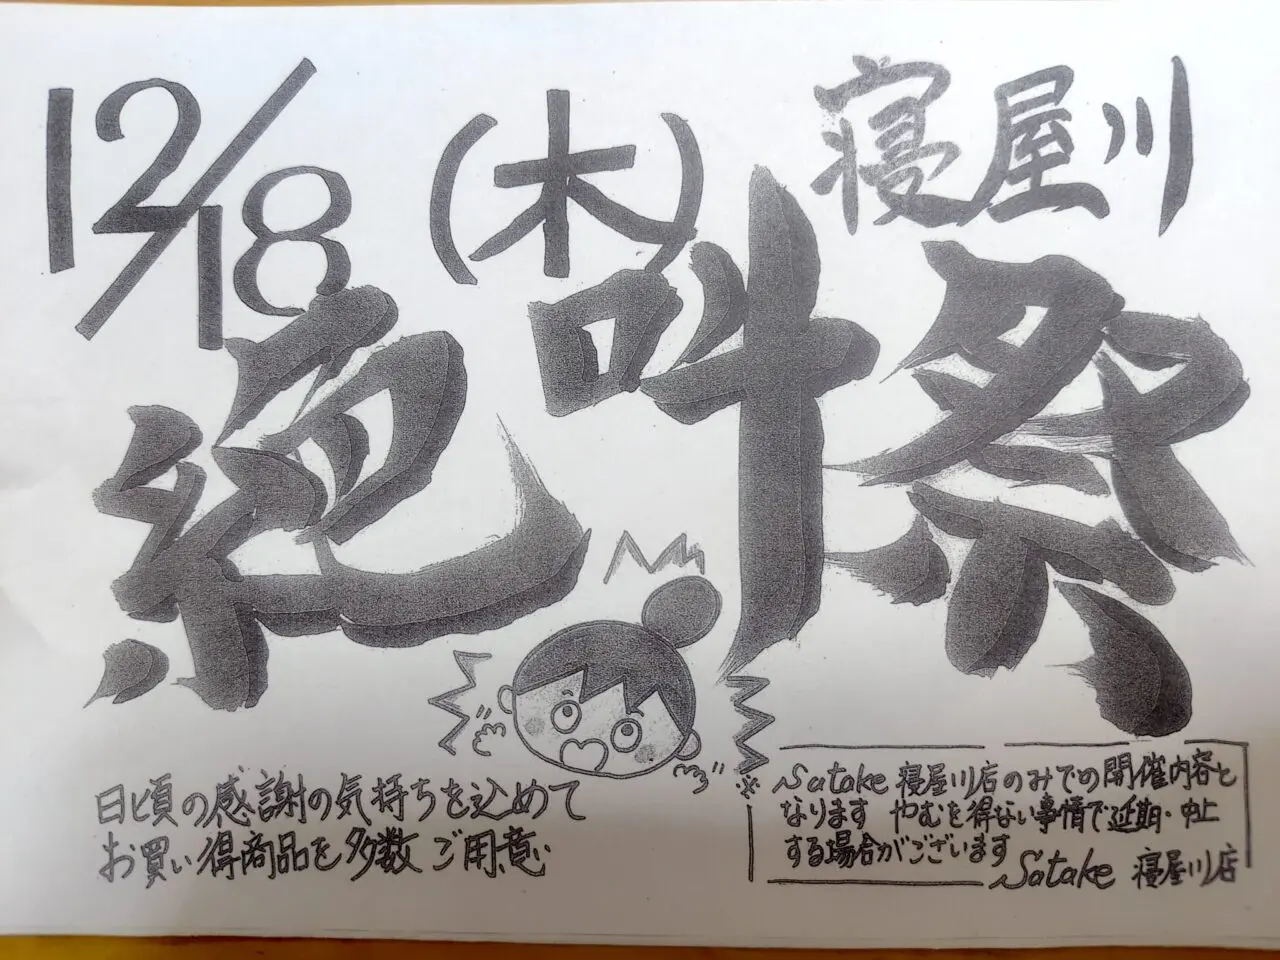 12/18(木) 寝屋川
絶叫祭
日頃の感謝の気持ちを込めて
お買い得商品を多数ご用意
※Satake寝屋川店のみでの開催内容と
なります やむを得ない事情で延期・中止
する場合がございます
Satake 寝屋川店